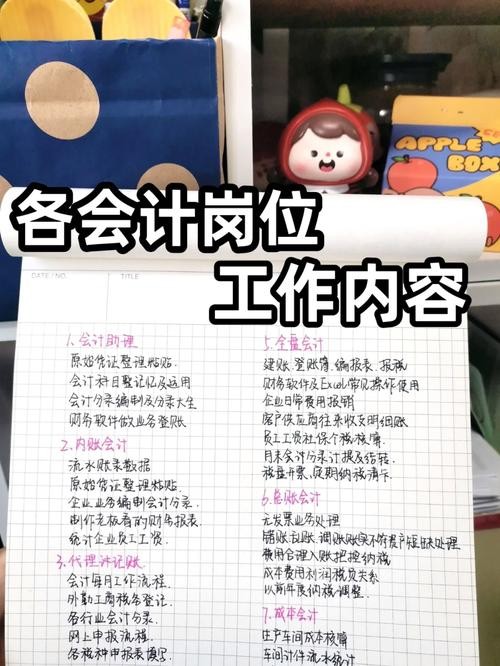 APPLE
BOX
各会计岗位
工作内容
DATE / NO.
TITLE
1.会计助理
原始凭证整理粘贴
会计科目登记及运用
会计分录编制及分录大全
财务软件做业务登账
2.内账会计
流水账录数据
原始凭证整理粘贴
企业业务编制会计分录
制作老板看的财务报表
统计企业员工工资
3.代理记账
会计每月工作流程
外勤工商税务登记
各行业会计分录
网上申报流程
各税种申报表填写
5.全盘会计
建账、登账簿、编报表、报税
财务软件及Excel常见操作使用
企业日常费用报销
客户供应商往来收支明细账
员工工资社保个税核算
月末会计分录计提及结转
税盘开票、定期纳税清卡
6.总账会计
无发票业务处理
错账乱账、调账账实不符资产短缺处理
费用合理入账把控纳税
成本费用利润税负关系
以前年度纳税调整
7.成本会计
生产车间成本核算
车间计件流水统计